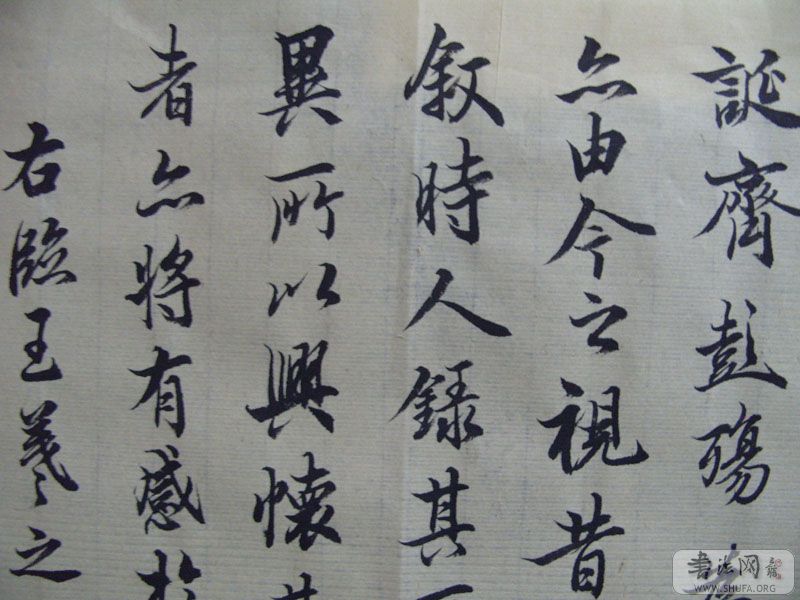 誕齊彭殤
亦由今之視昔
敘時人錄其
異所以興懷其
者亦將有感於
右臨王羲之
書法网
WWW.SHUFA.ORG